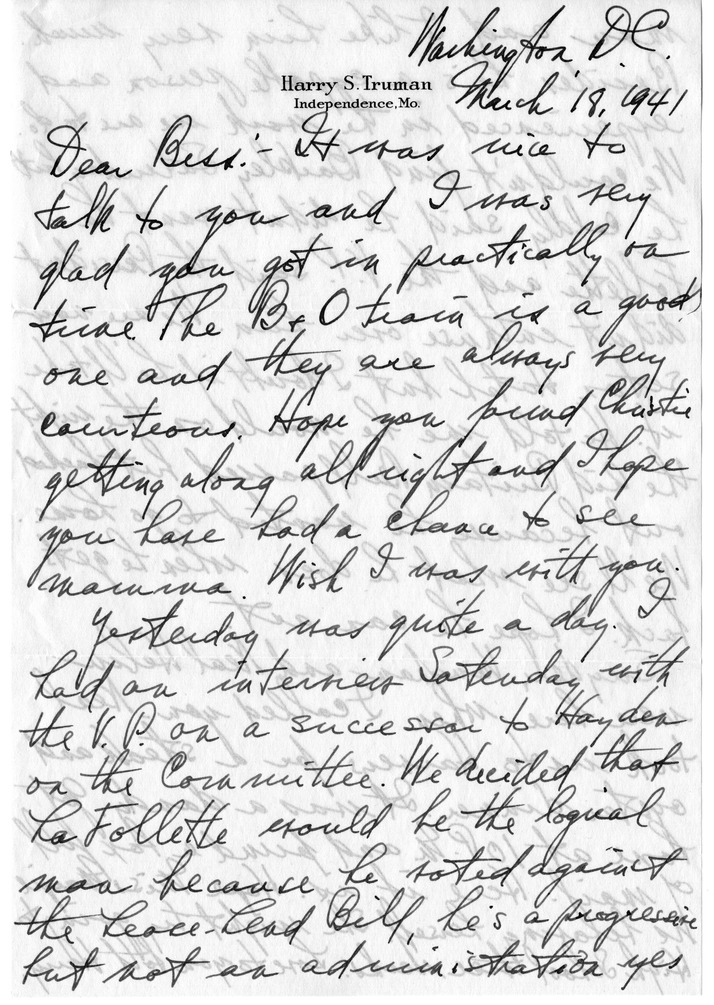 Washington D.C.
Harry S. Truman
Independence, Mo.
March 18, 1941
Dear Bess:- It was nice to
talk to you and I was very
glad you got in practically on
time. The B & O train is a good
one and they are always very
courteous. Hope you found Christie
getting along all right and I hope
you have had a chance to see
mamma. Wish I was with you.
Yesterday was quite a day. I
had an interview Saturday with
the V.P. on a successor to Hayden
on the Committee. We decided that
La Follette would be the logical
man because he voted against
the Lease-Lend Bill, he's a progressive
but not an administration yes